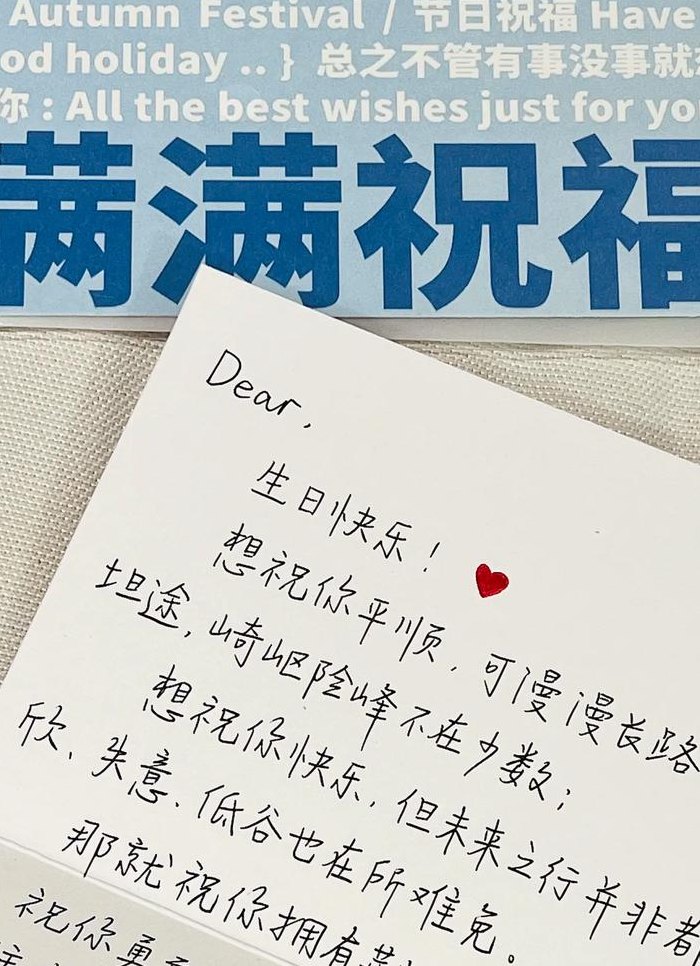 Autumn Festival / 节日祝福 Have
od holiday .. } 总之不管有事没事就
你 : All the best wishes just for yo
满满祝福
Dear,
生日快乐！
想祝你平顺，可漫漫长路
坦途，崎岖险峰不在少数；
想祝你快乐，但未来之行并非都
欣、失意、低谷也在所难免。
那就祝你拥有
祝你勇